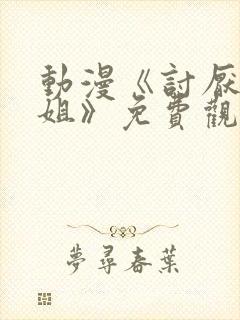 動漫《討厭
姐》免費觀
夢尋春葉